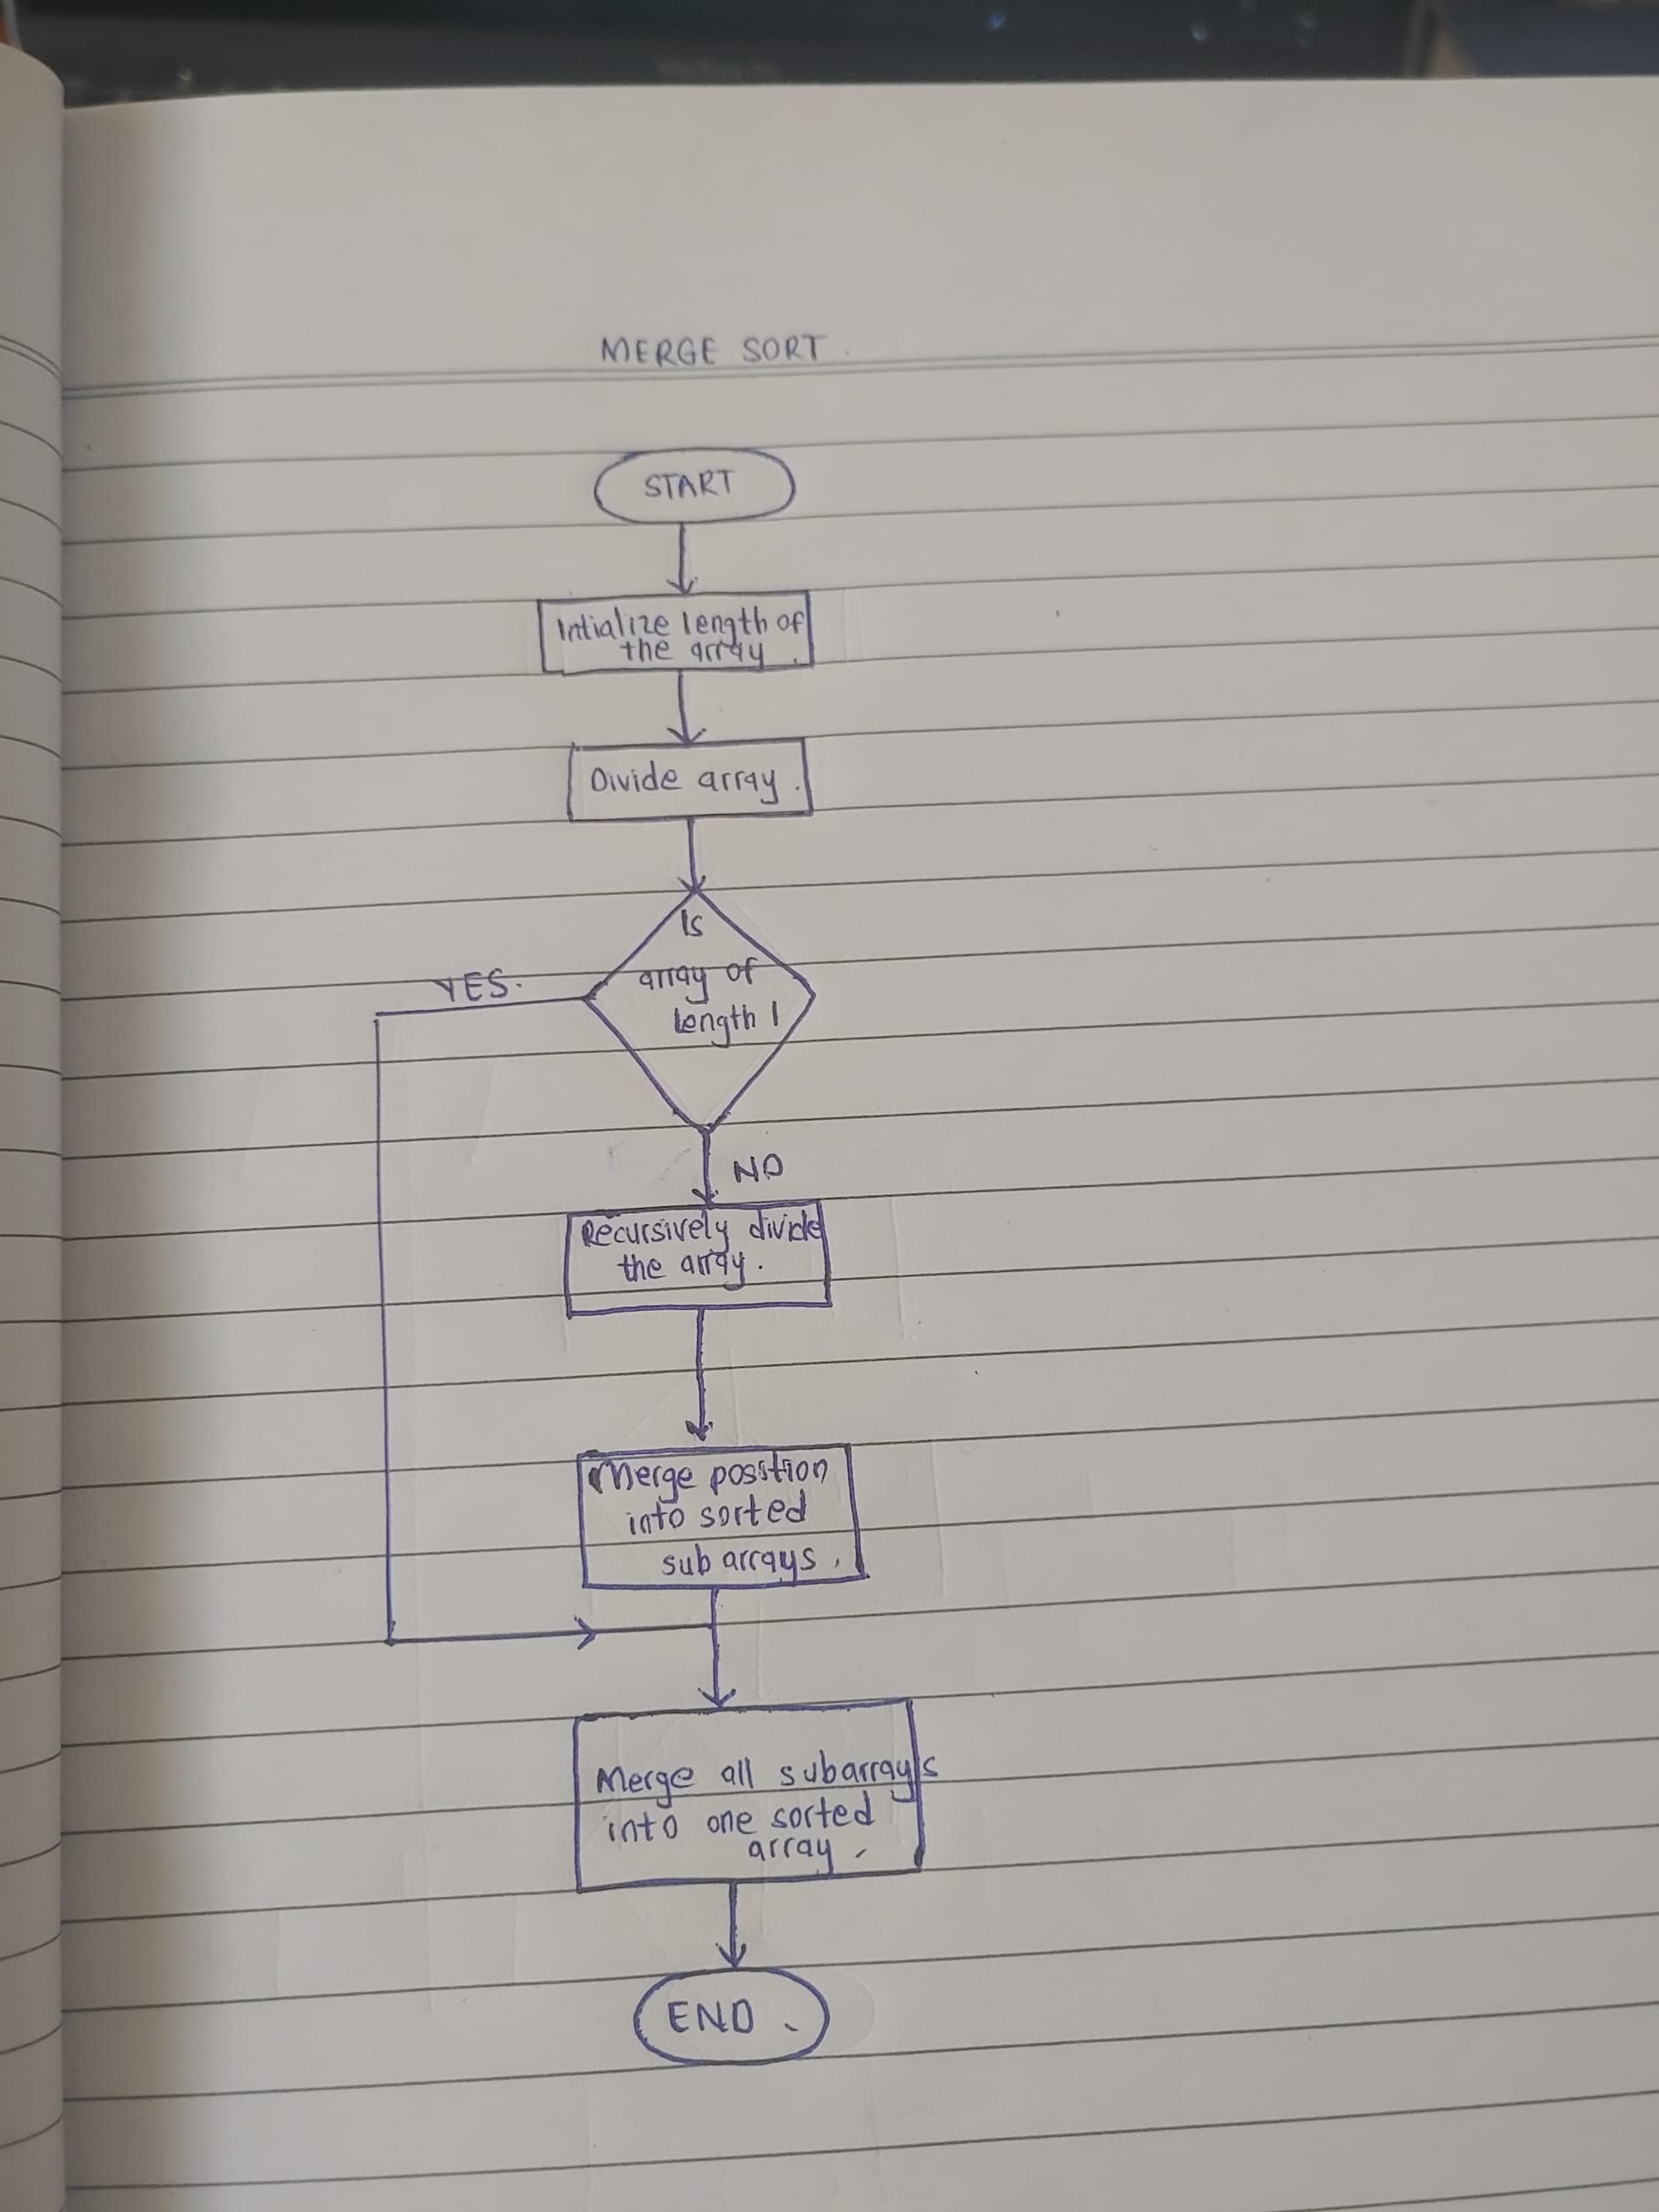 MERGE SORT.
START
Intialize length of
the array.
Divide array.
Is
array of
length 1
YES.
NO
Recursively divide
the array.
Merge position
into sorted
sub arrays.
Merge all subarrays
into one sorted
array.
END.